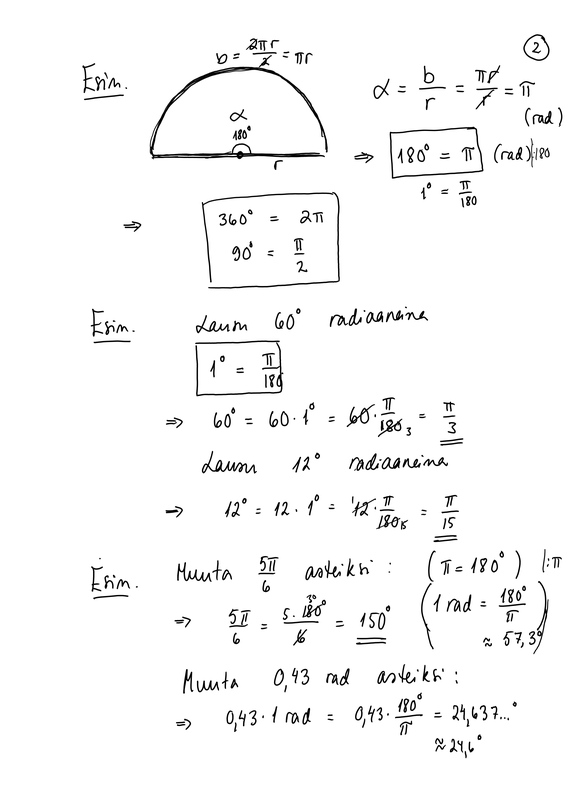 2
Esim.
b = 2πr/2 = πr
α
180°
r
α = b/r = πr/r = π
(rad)
⇒ 180° = π (rad) |:180
1° = π/180
⇒ 360° = 2π
90° = π/2
Esim. Lausu 60° radiaaneina
1° = π/180
⇒ 60° = 60·1° = 60·π/180 3 = π/3
Lausu 12° radiaaneina
⇒ 12° = 12·1° = 1 12·π/180 15 = π/15
Esim. Muuta 5π/6 asteiksi : (π = 180°) |:π
⇒ 5π/6 = 5·180° 30/6 = 150° (1 rad = 180°/π
≈ 57,3°)
Muuta 0,43 rad asteiksi :
⇒ 0,43·1 rad = 0,43·180°/π = 24,637...°
≈ 24,6°